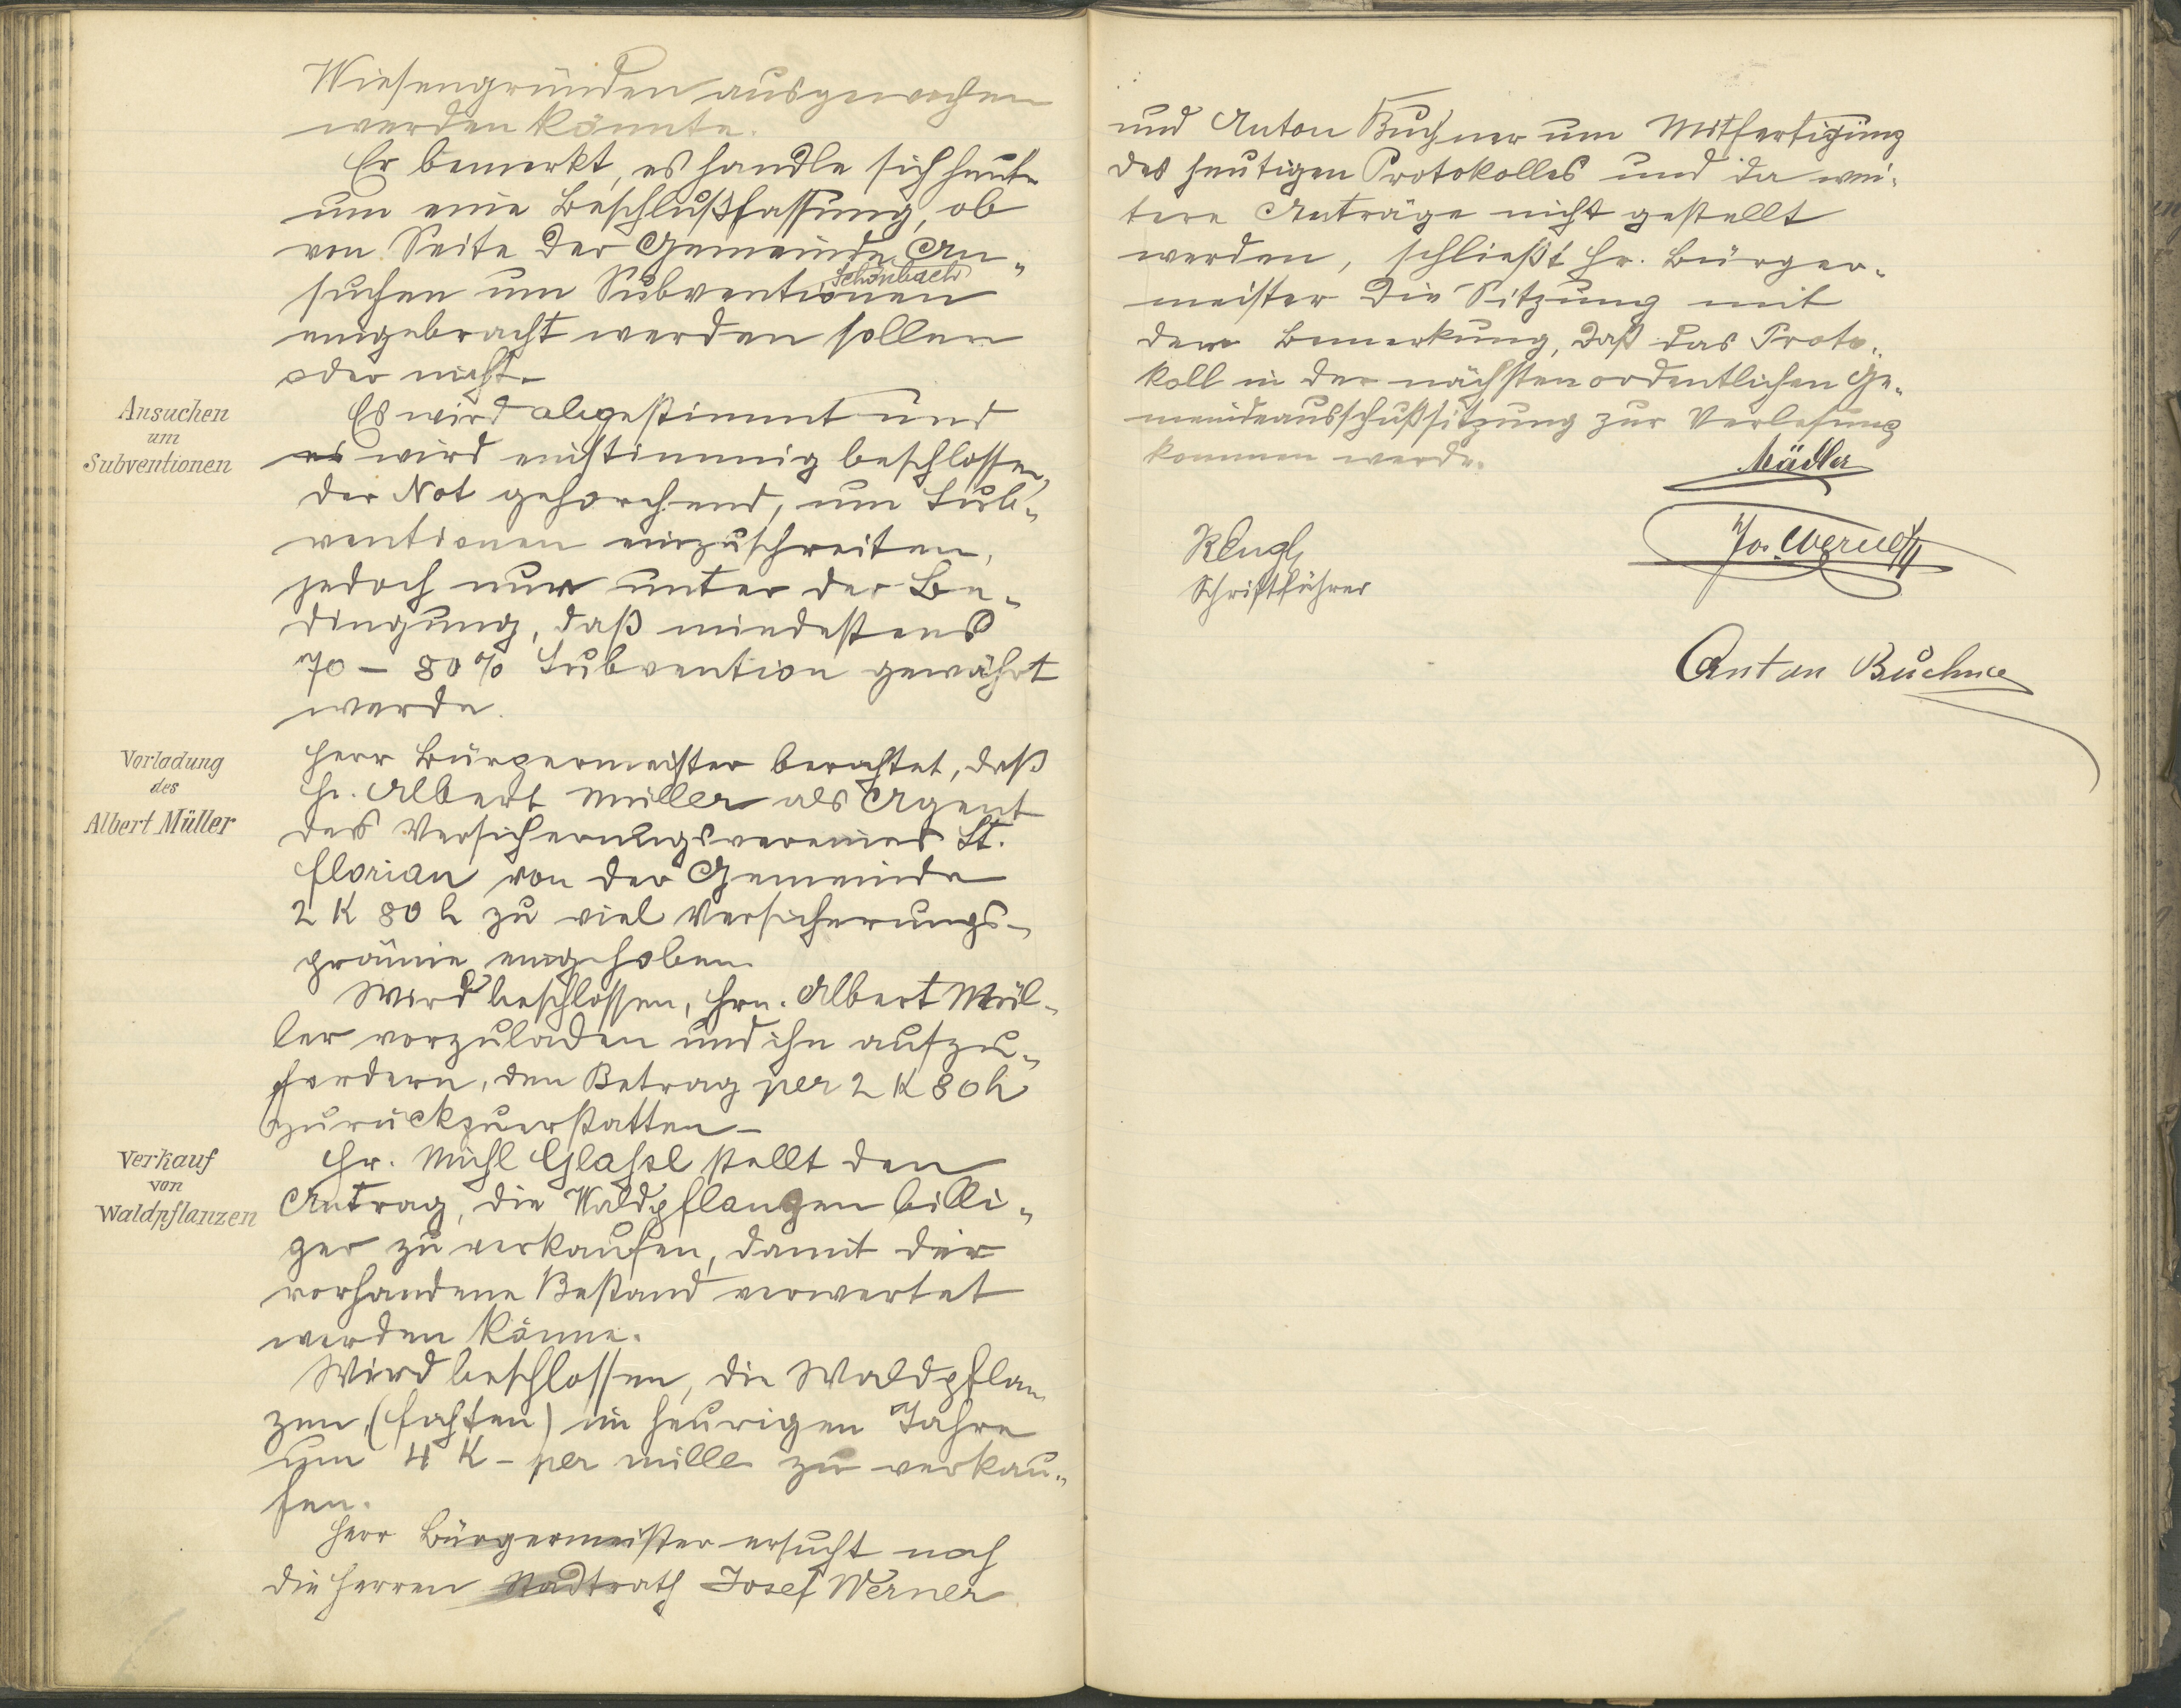 Wiesengründen ausgewichen
werden könnte.
Er bemerkt, es handle sich heute
um eine Beschlußfassung, ob
von Seite der Gemeinde An-
Schönbach
suchen um Subventionen
eingebracht werden sollen
oder nicht.
Ansuchen
um
Subventionen
Es wird abgestimmt und
es wird einstimmig beschlossen,
der Not gehorchend, um Sub-
ventionen einzuschreiten,
jedoch nur unter der Be-
dingung, daß mindestens
70 – 80% Subvention gewährt
werde.
Vorladung
des
Albert Müller
Herr Bürgermeister berichtet, daß
Hr. Albert Müller als Agent
des Versicherungsvereines St.
Florian von der Gemeinde
2 K 80 h zu viel Versicherungs-
prämie eingehoben.
Wird beschlossen, Hrn. Albert Mül-
ler vorzuladen und ihn aufzu-
fordern, den Betrag per 2 K 80 h
zurückzuerstatten –
Verkauf
von
Waldpflanzen
Hr. Michl Glassl stellt den
Antrag, die Waldpflanzen billi-
ger zu verkaufen, damit der
vorhandene Bestand verwertet
werden könne.
Wird beschlossen, die Waldpflan-
zen (Fichten) im heurigen Jahre
um 4 K – per mille zu verkau-
fen.
Herr Bürgermeister ersucht noch
die Herren Stadtrath Josef Werner
und Anton Buchner um Mitfertigung
des heutigen Protokolles und da wei-
tere Anträge nicht gestellt
werden, schließt Hr. Bürger-
meister die Sitzung mit
dem Bemerkung, daß das Proto-
koll in der nächsten ordentlichen Ge-
meindeausschußsitzung zur Verlesung
kommen werde.
Mädler
Jos. Werner
Schriftführer
Anton Buchner